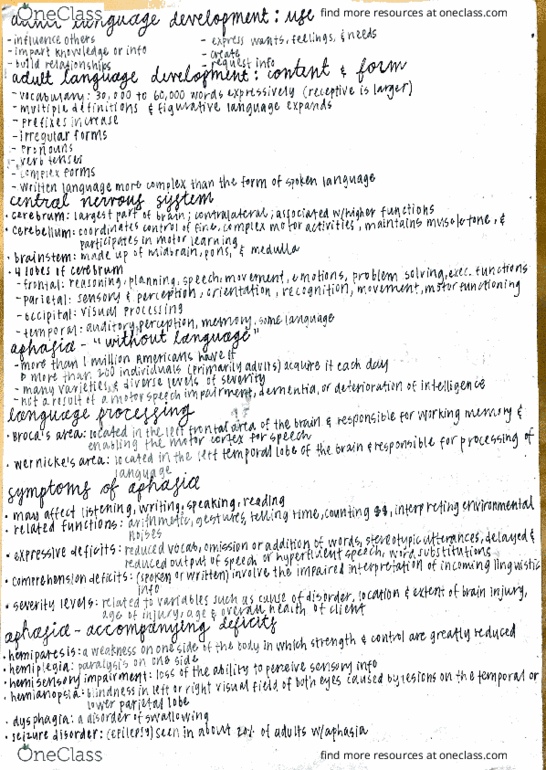 adult language development: use
find more resources at oneclass.com
OneClass
- influence others
- express wants, feelings, & needs
- impart knowledge or info
- create
- build relationships
- request info
adult language development: content & form
- vocabulary: 30,000 to 60,000 words expressively (receptive is larger)
- multiple definitions & figurative language expands
- prefixes increase
- irregular forms
- pronouns
- verb tenses
- complex forms
- written language more complex than the form of spoken language
central nervous system
• cerebrum: largest part of brain; contralateral; associated w/higher functions
• cerebellum: coordinates control of fine, complex motor activities, maintains muscle tone, &
participates in motor learning
• brainstem: made up of midbrain, pons, & medulla
• 4 lobes of cerebrum
- frontal: reasoning, planning, speech, movement, emotions, problem solving, exec. functions
- parietal: sensory & perception, orientation, recognition, movement, motor functioning
- occipital: visual processing
- temporal: auditory, perception, memory, some language
aphasia - "without language"
- more than 1 million Americans have it
more than 200 individuals (primarily adults) acquire it each day
- many varieties & diverse levels of severity
- not a result of a motor speech impairment, dementia, or deterioration of intelligence
language processing
• Broca's area: located in the left frontal area of the brain & responsible for working memory &
enabling the motor cortex for speech
• Wernicke's area: located in the left temporal lobe of the brain & responsible for processing of
language
symptoms of aphasia
• may affect listening, writing, speaking, reading
• related functions: arithmetic, gestures, telling time, counting $$, interpreting environmental
noises
• expressive deficits: reduced vocab, omission or addition of words, stereotypic utterances, delayed &
reduced output of speech or hyperfluent speech, word substitutions
• comprehension deficits: (spoken or written) involve the impaired interpretation of incoming linguistic
info
• severity levels: related to variables such as cause of disorder, location & extent of brain injury,
age of injury, age & overall health of client
aphasia - accompanying deficits
• hemiparesis: a weakness on one side of the body in which strength & control are greatly reduced
• hemiplegia: paralysis on one side
• hemisensory impairment: loss of the ability to perceive sensory info
• hemianopsia: blindness in left or right visual field of both eyes caused by lesions on the temporal or
lower parietal lobe
• dysphagia: a disorder of swallowing
• seizure disorder: (epilepsy) seen in about 20% of adults w/aphasia
OneClass
find more resources at oneclass.com